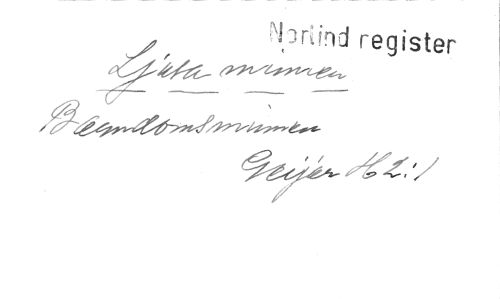 Norlind register
Ljuva minnen
Barndomsminnen
Geijer H 2:1